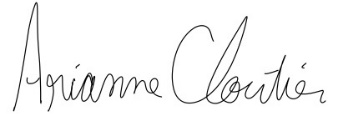 Arianne Cloutier